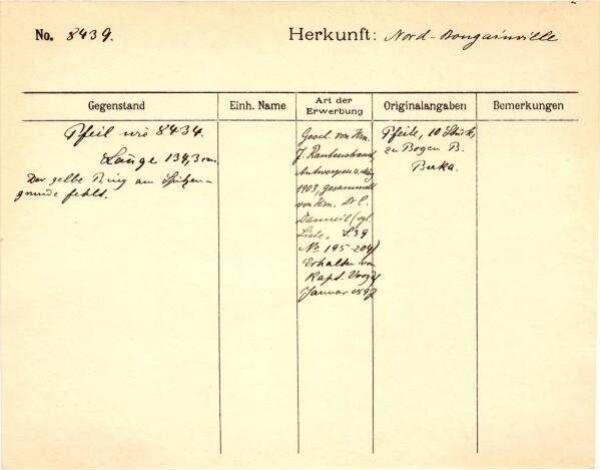 No. 8439.
Herkunft: Nord-Bougainville
Gegenstand
Einh. Name
Art der Erwerbung
Originalangaben
Bemerkungen
Pfeil wie 8434.
Länge 139,3 cm.
Der gelbe Ring am Spitzen-
grunde fehlt.
Gesch. von Hrn.
J.
Antwerpen
1903, gesammelt
von Hrn. Dr C.
(vgl.
Liste, S. 39
No 195-204)
Erhalten von
Kapt.
Januar 1897
Pfeile, 10 Stück,
zu Bogen B.
Buka.